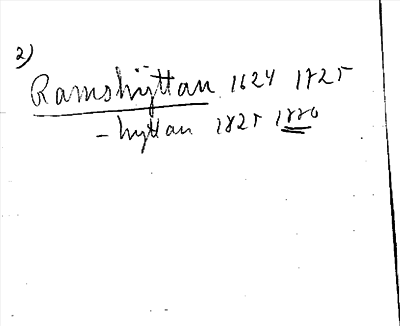 2)
Ramshÿttan 1624 1825
- hyttan 1825 1880